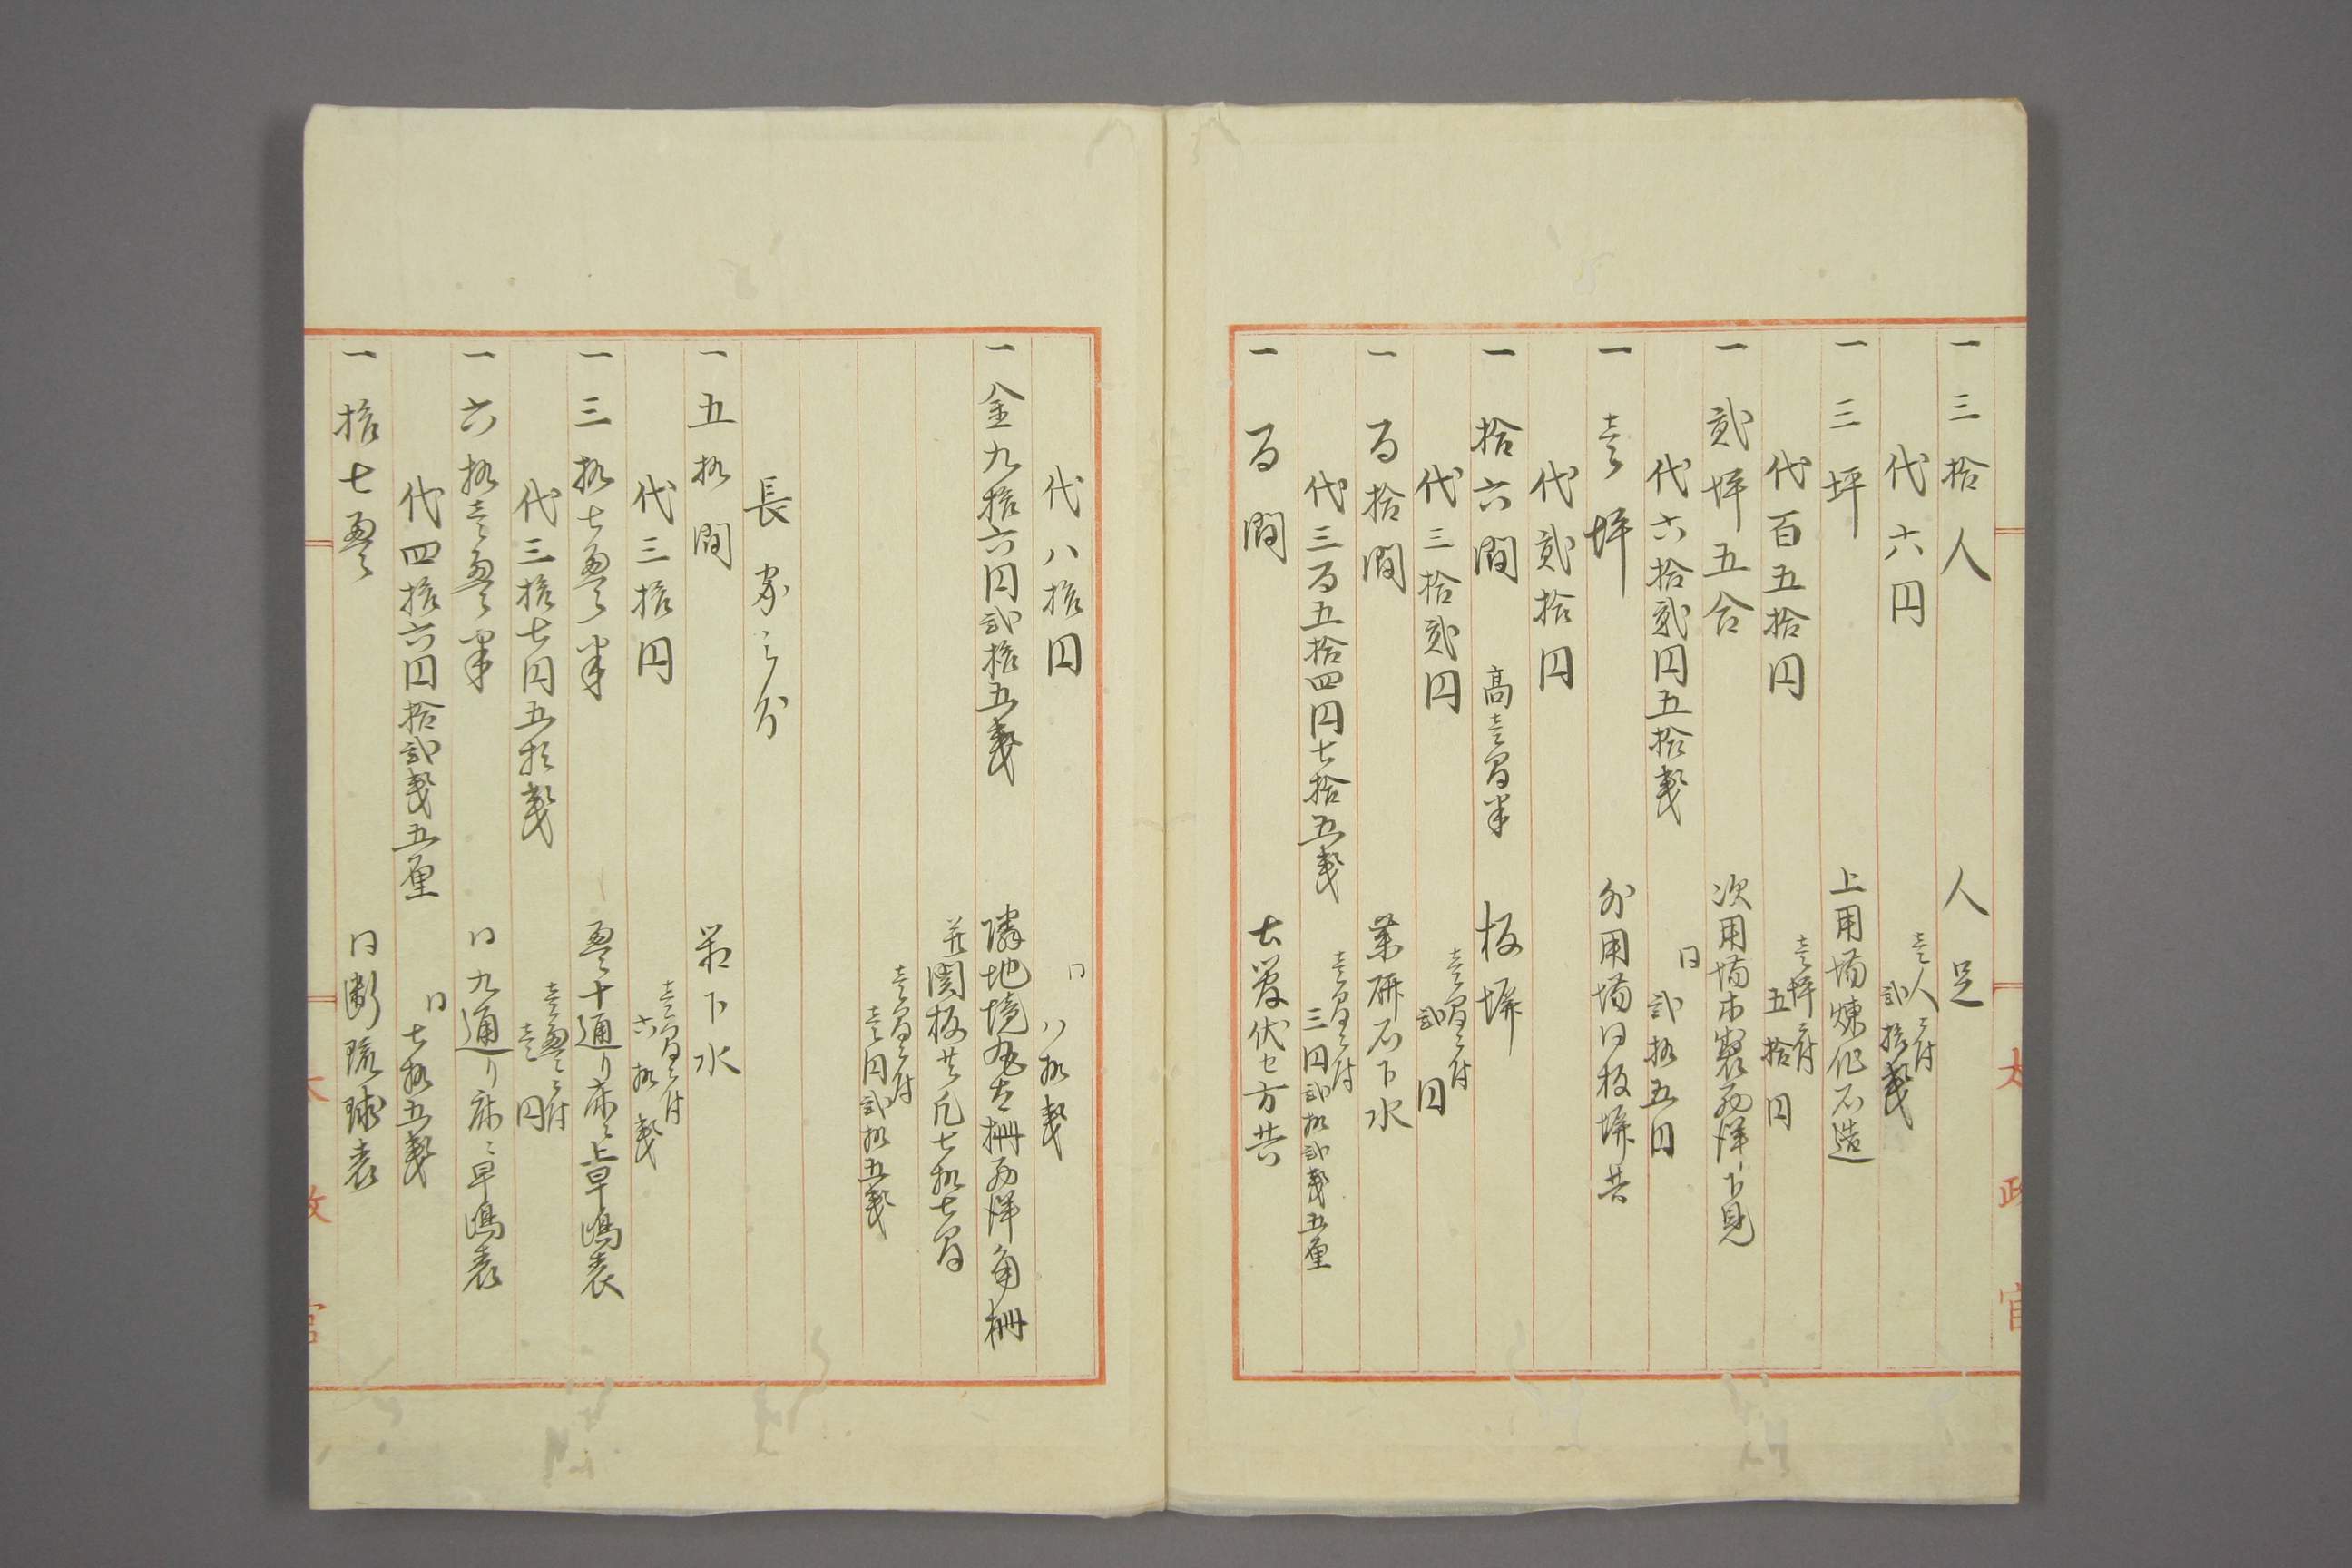 一三拾人　人足
代六円　壱人ニ付 弐拾銭
一三坪　上用場煉化石造
代百五拾円　壱坪ニ付 五拾円
一貳坪五合　次用場木製西洋下見
代六拾貳円五拾銭　同 弐拾五円
一壱坪　外用場同板塀共
代貳拾円
一拾六間　高壱間半　板塀
代三拾貳円　壱間ニ付 弐円
一百拾間　薬研石下水
代三百五拾四円七拾五銭　壱間ニ付 三円弐拾弐銭五厘
一百間　土管伏セ方共
太政官
代八拾円　同 八拾銭
一金九拾六円弐拾五銭　隣地境丸太柵西洋角柵
並関板共凡七拾七間
壱間ニ付 壱円弐拾五銭
長家之分
一五拾間　箱下水
代三拾円　壱間ニ付 六拾銭
一三拾七畳半　畳十通り床ニ上早嶋表
代三拾七円五拾銭　壱畳ニ付 壱円
一六拾壱畳半　同九通り床ニ早嶋表
代四拾六円拾弐銭五厘　同 七拾五銭
一拾七畳　同断琉球表
太政官